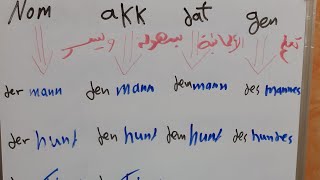 Nom akk dat gen
تعلم الألمانية بسهولة ويسر
der mann den mann dem mann des mannes
der hunt den hunt dem hunt des hundes